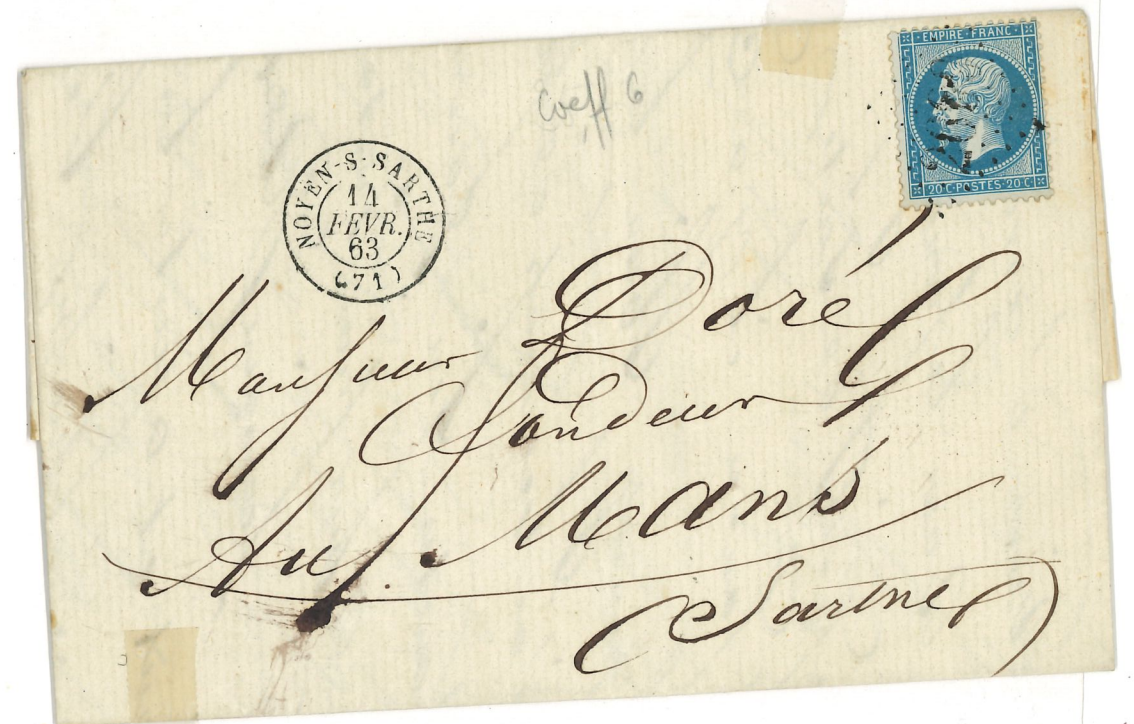 EMPIRE · FRANC ·
20 C · POSTES · 20 C
Coeff 6
NOYEN-S-SARTHE
14
FEVR.
63
(71)
Monsieur Doré
Fondeur
Au Mans
Sarthe